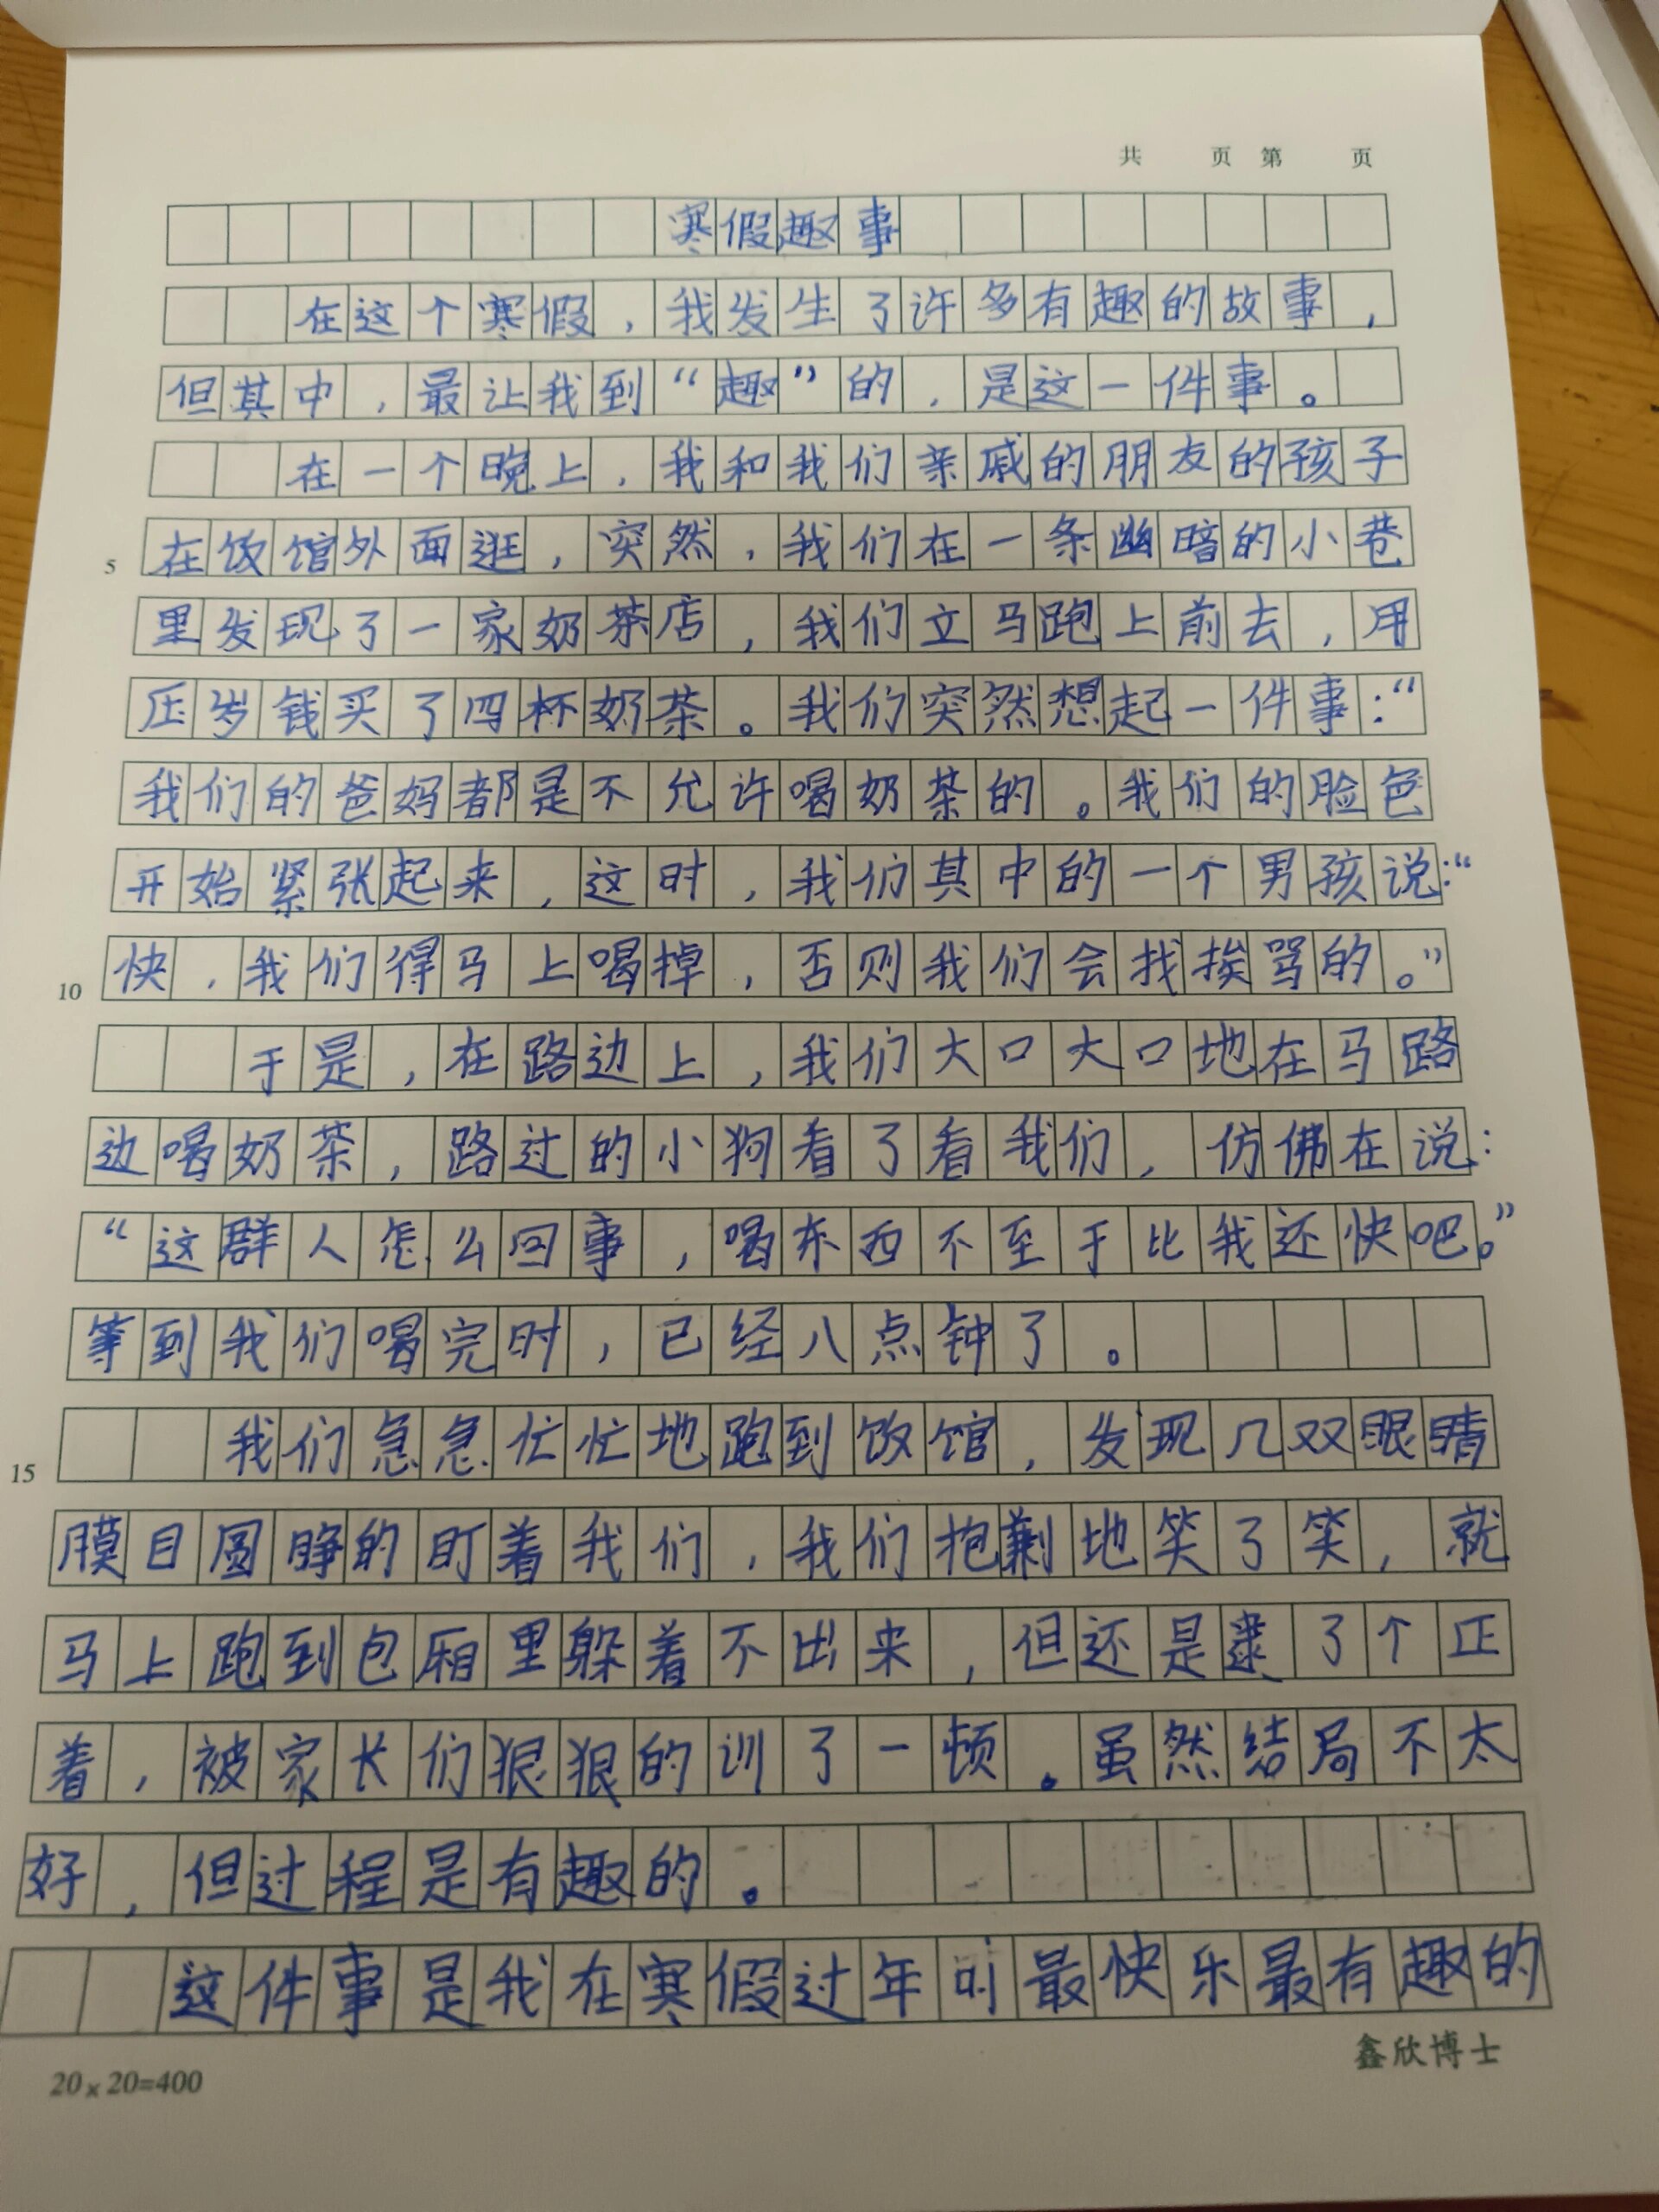 共 页 第 页
寒假趣事
在这个寒假，我发生了许多有趣的故事，
但其中，最让我到“趣”的，是这一件事。
在一个晚上，我和我们亲戚的朋友的孩子
5 在饭馆外面逛，突然，我们在一条幽暗的小巷
里发现了一家奶茶店，我们立马跑上前去，用
压岁钱买了四杯奶茶。我们突然想起一件事：“
我们的爸妈都是不允许喝奶茶的。我们的脸色
开始紧张起来，这时，我们其中的一个男孩说：“
10 快，我们得马上喝掉，否则我们会找挨骂的。”
于是，在路边上，我们大口大口地在马路
边喝奶茶，路过的小狗看了看我们，仿佛在说：
“这群人怎么回事，喝东西不至于比我还快吧。”
等到我们喝完时，已经八点钟了。
15 我们急急忙忙地跑到饭馆，发现几双眼睛
目圆睁的盯着我们，我们抱地笑了笑，就
马上跑到包厢里躲着不出来，但还是逮了个正
着，被家长们狠狠的训了一顿。虽然结局不太
好，但过程是有趣的。
这件事是我在寒假过年时最快乐最有趣的
20×20=400
鑫欣博士